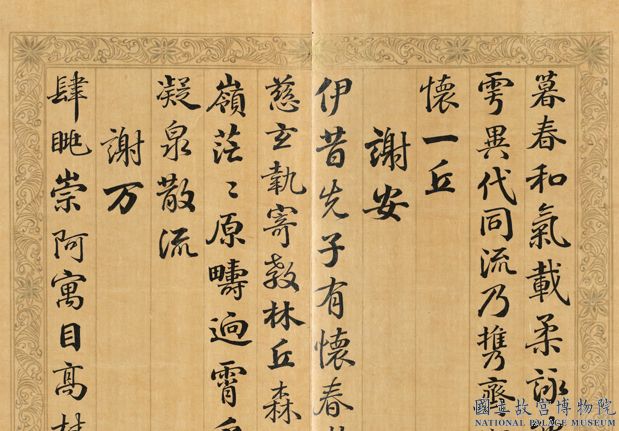 暮春和氣載柔詠
雩異代同流乃携齊
懷一丘
謝安
伊昔先子有懷春
慈言執寄敖林丘森
嶺茫〻原疇逈霄
凝泉散流
謝万
肆眺崇阿寓目高
國立故宮博物院
NATIONAL PALACE MUSEUM